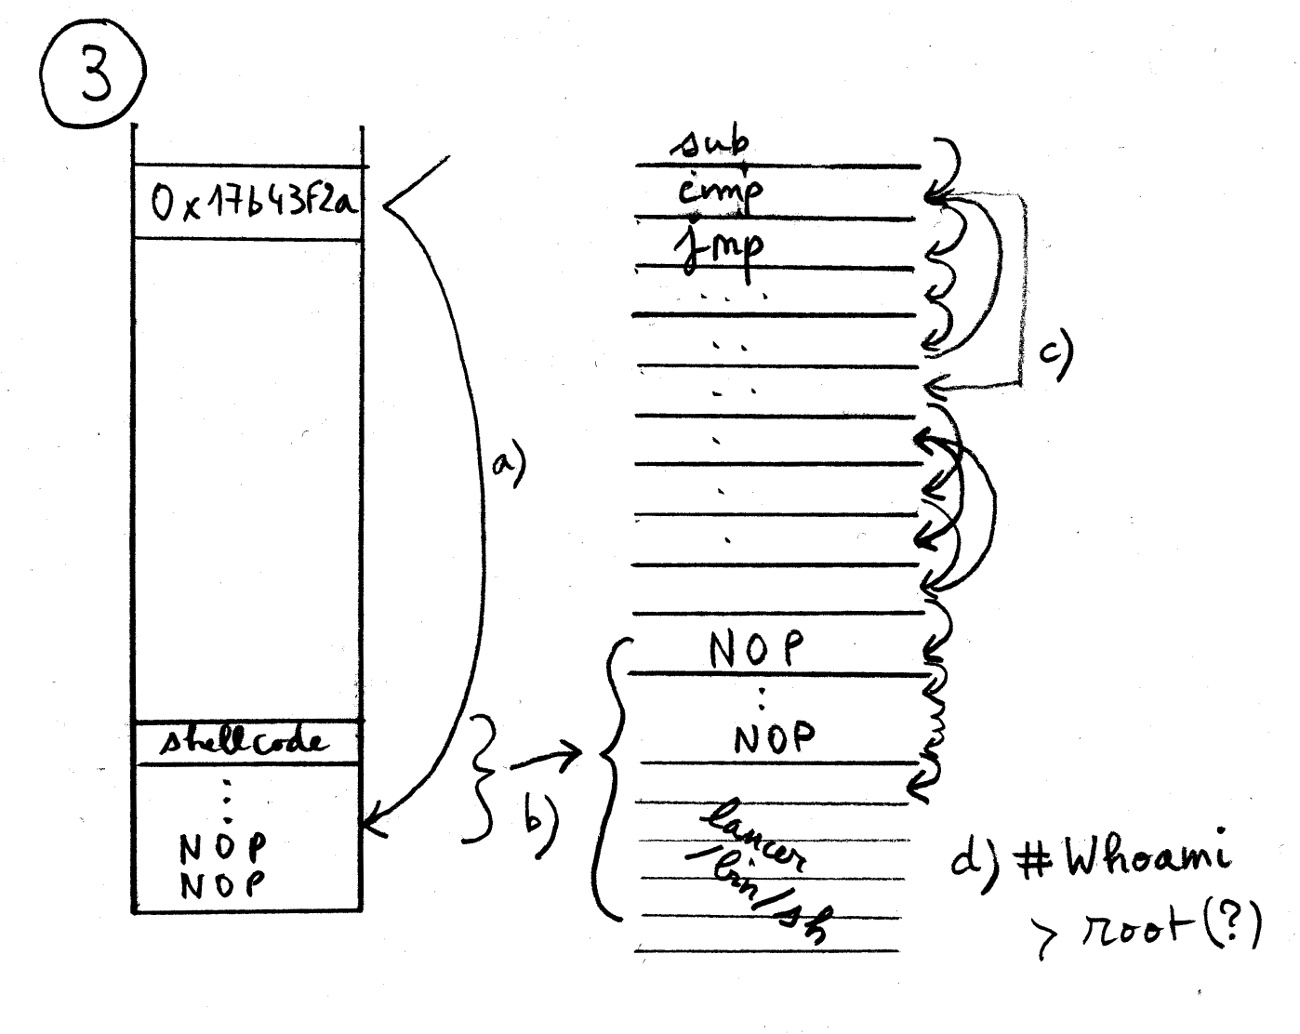 3
0x17b43f2a
a)
shellcode
NOP
NOP
b)
sub
cmp
jmp
c)
NOP
NOP
lancer
/bin/sh
d) # Whoami
> root(?)